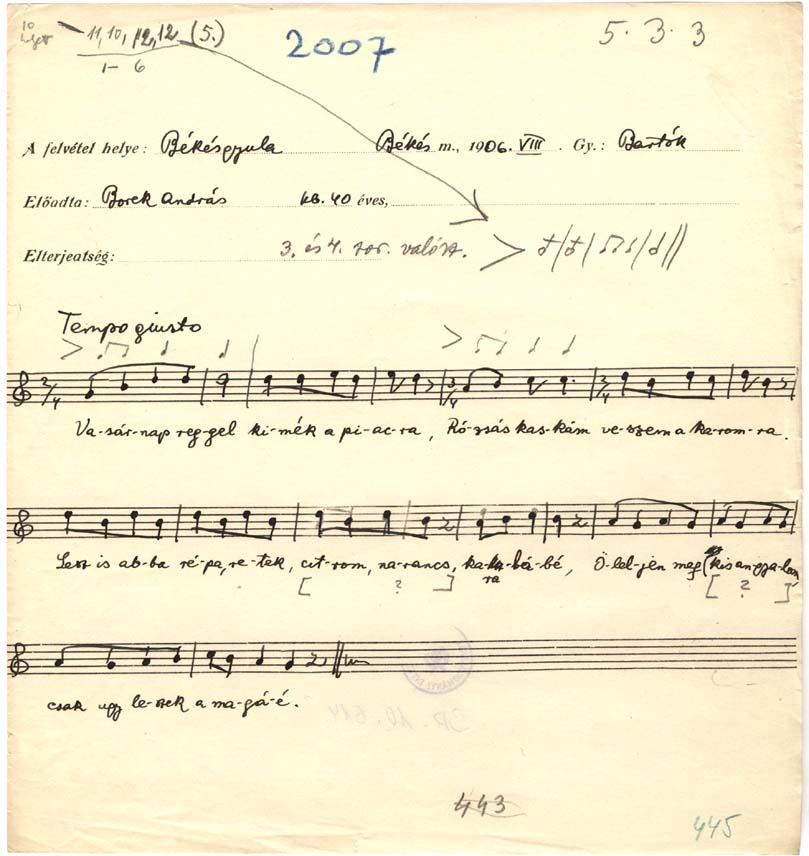 10
helyett
11, 10, 12, 12 (5.)
1– 6
2007
5. 3. 3
A felvétel helye: Békésgyula Békés m., 1906. VIII. Gy.: Bartók
Előadta: Borek András kb. 40 éves,
Elterjedtség: 3. és 4. sor. valósz.
Tempo giusto
2/4 3/4 2/4
Va-sár-nap reg-gel ki-mék a pi-ac-ra, Ró-zsás kas-kám ve-szem a ka-rom-ra.
Lesz is ab-ba ré-pa, re-tek, cit-rom, na-rancs, ka-ka-béi-bé, Ö-lel-jen meg (kis an-gya-lom
[ ? ] ra [ ? ]
csak ugy le-szek a ma-gá-é.
443
445